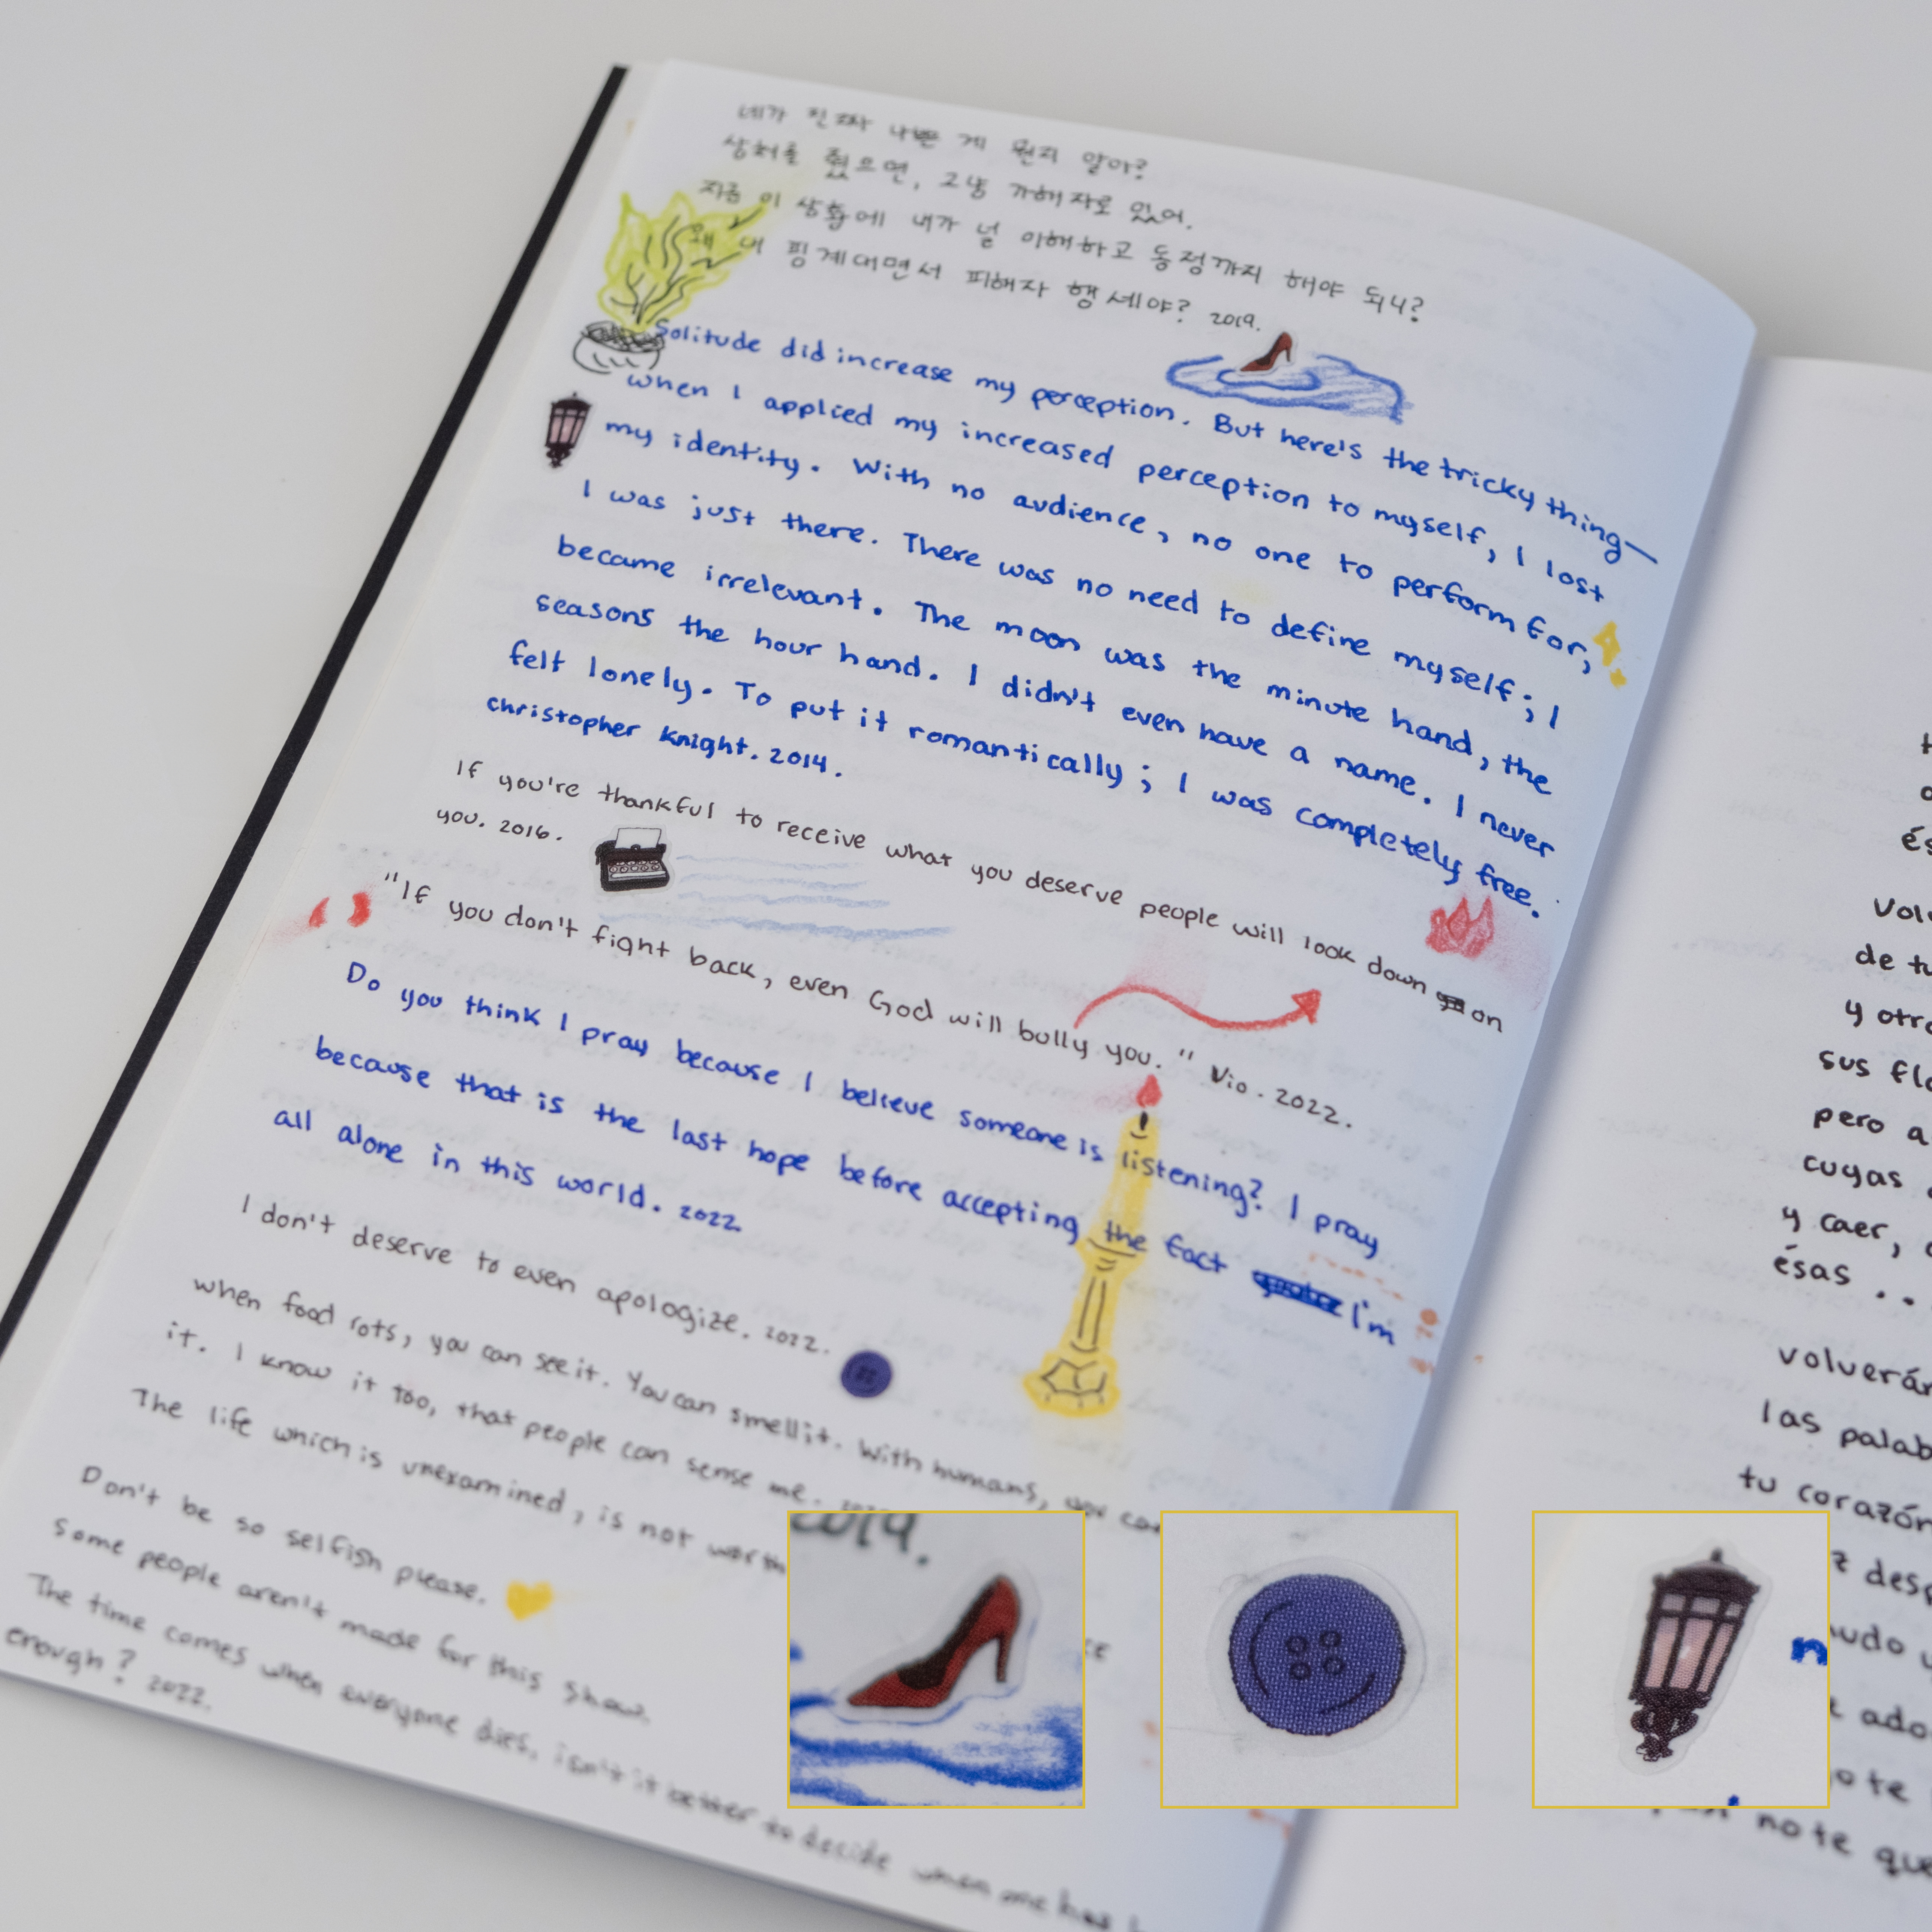 네가 진짜 나쁜 게 뭔지 알아?
상처를 줬으면, 그냥 가해자로 있어.
지금 이 상황에 내가 널 이해하고 동정까지 해야 되니?
왜 내 핑계대면서 피해자 행세야? 2019.
Solitude did increase my perception. But here's the tricky thing—
when I applied my increased perception to myself, I lost
my identity. With no audience, no one to perform for,
I was just there. There was no need to define myself; I
became irrelevant. The moon was the minute hand, the
seasons the hour hand. I didn't even have a name. I never
felt lonely. To put it romantically; I was completely free.
christopher Knight. 2014.
If you're thankful to receive what you deserve people will look down on
you. 2016.
"If you don't fight back, even God will bully you." Vio. 2022.
Do you think I pray because I believe someone is listening? I pray
because that is the last hope before accepting the fact I'm
all alone in this world. 2022.
I don't deserve to even apologize. 2022.
when food rots, you can see it. You can smell it. With humans, you can
it. I know it too, that people can sense me.
The life which is unexamined, is not worth
Don't be so selfish please.
Some people aren't made for this show.
The time comes when everyone dies, isn't it better to decide when one has
enough? 2022.
2019.
de tu
y otra
sus flo
pero a
cuyas
y caer,
ésas ..
volverán
las palab
tu corazón
desp
ado
no te que